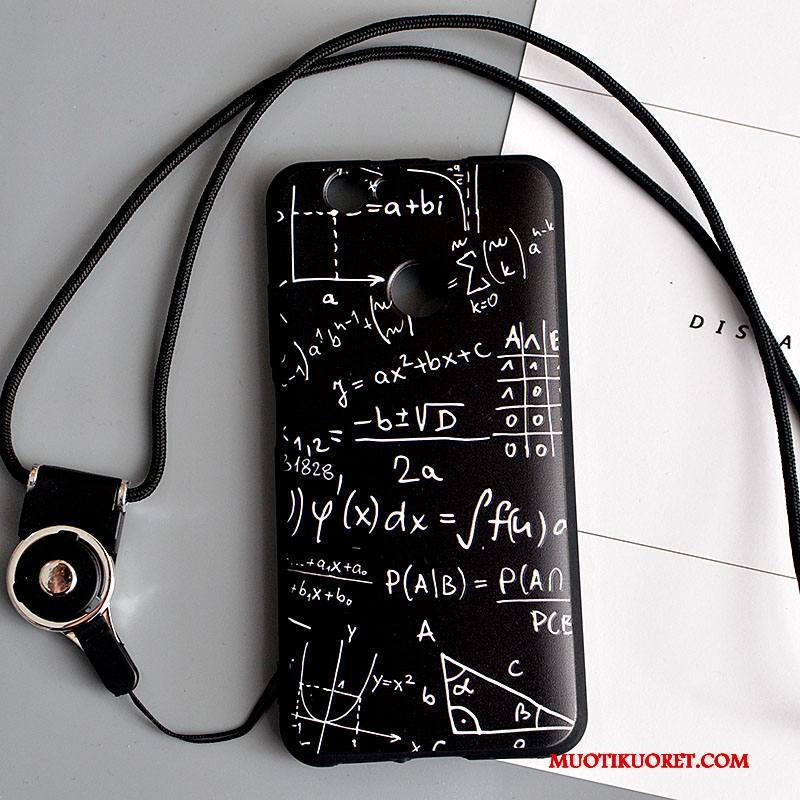 =a+bi
a
= n ∑ k=0 (n k) a n-k
a¹bⁿ⁻¹+(n n)
y = ax²+bx+c
A ∧ B
1 1
1 0
0 0
0 0
1,2 = -b±√D
2a
31828,
))φ'(x)dx = ∫f(u)
...+a₁x+a₀
+b₁x+b₀
P(A|B) = P(A∩
P(B
A
y
1
y=x²
-1 1
x
b α c β
C a
DIS A
MUOTIKUORET.COM